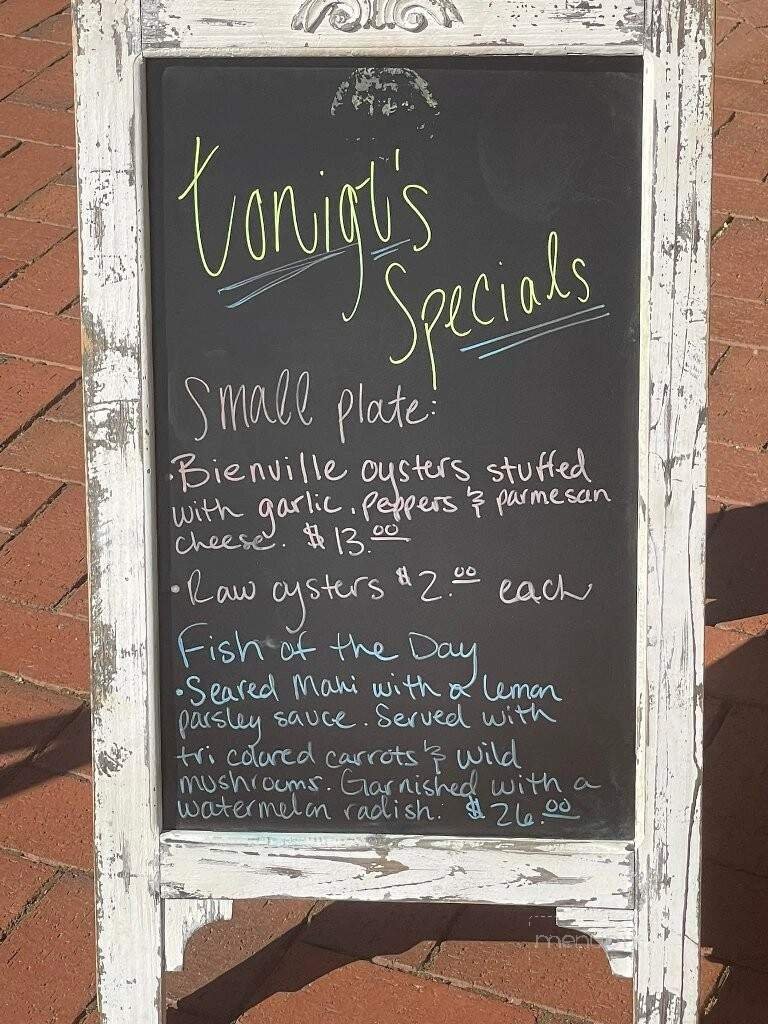 tonigt's
Specials
Small plate:
• Bienville oysters stuffed
with garlic, peppers & parmesan
cheese. $13.00
• Raw oysters $2.00 each
Fish of the Day
• Seared Mahi with a lemon
parsley sauce. Served with
tri colored carrots & wild
mushrooms. Garnished with a
watermelon radish. $26.00